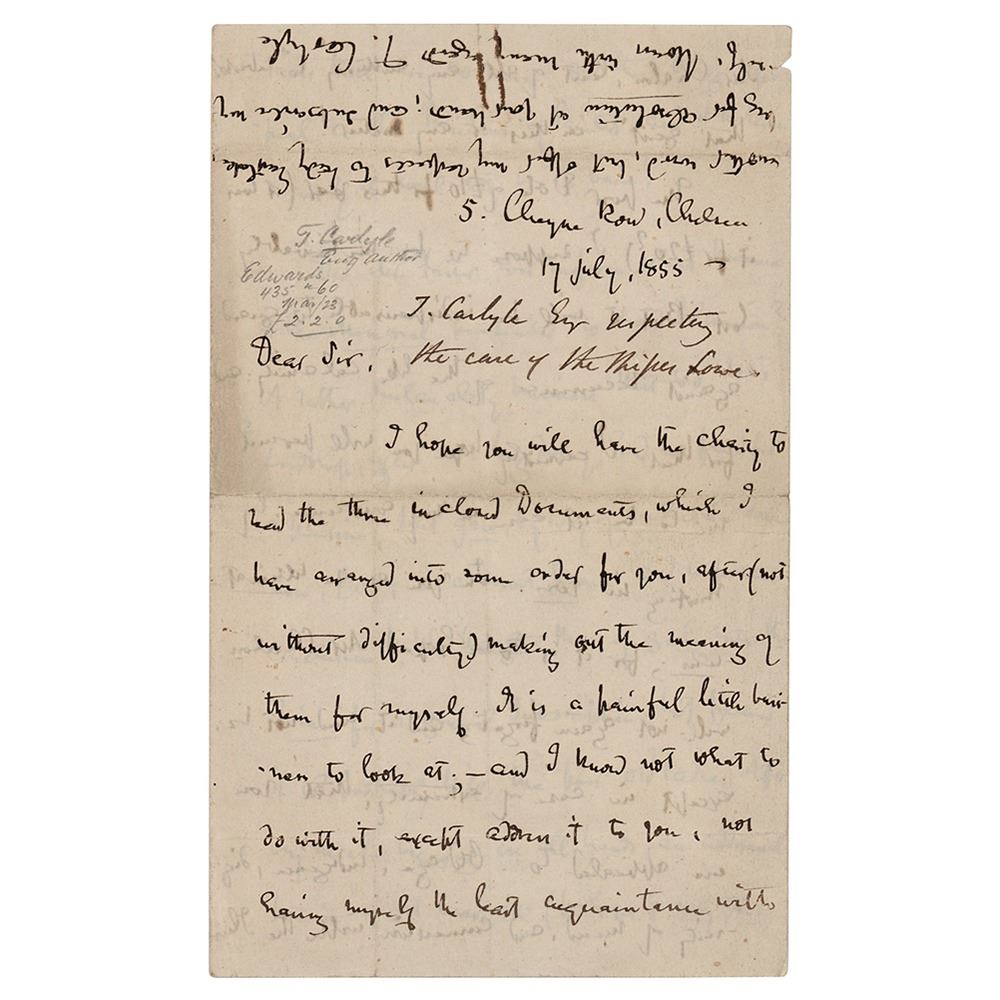 another word; but offer my respects to Lady Eastlake,
beg for absolution at your hand; and subscribe my
-self, Yours with many regards T. Carlyle
5. Cheyne Row, Chelsea
17 July, 1855 –
T. Carlyle
Eng author
Edwards
435 n 60
Mar/23
£2.2.0
T. Carlyle Esq respecting
the case of the Misses Lowe.
Dear Sir,
I hope you will have the charity to
read the three inclosed Documents, which I
have arranged into some order for you, after (not
without difficulty) making out the meaning of
them for myself. It is a painful little busi-
-ness to look at; – and I know not what to
do with it, except address it to you, not
having myself the least acquaintance with